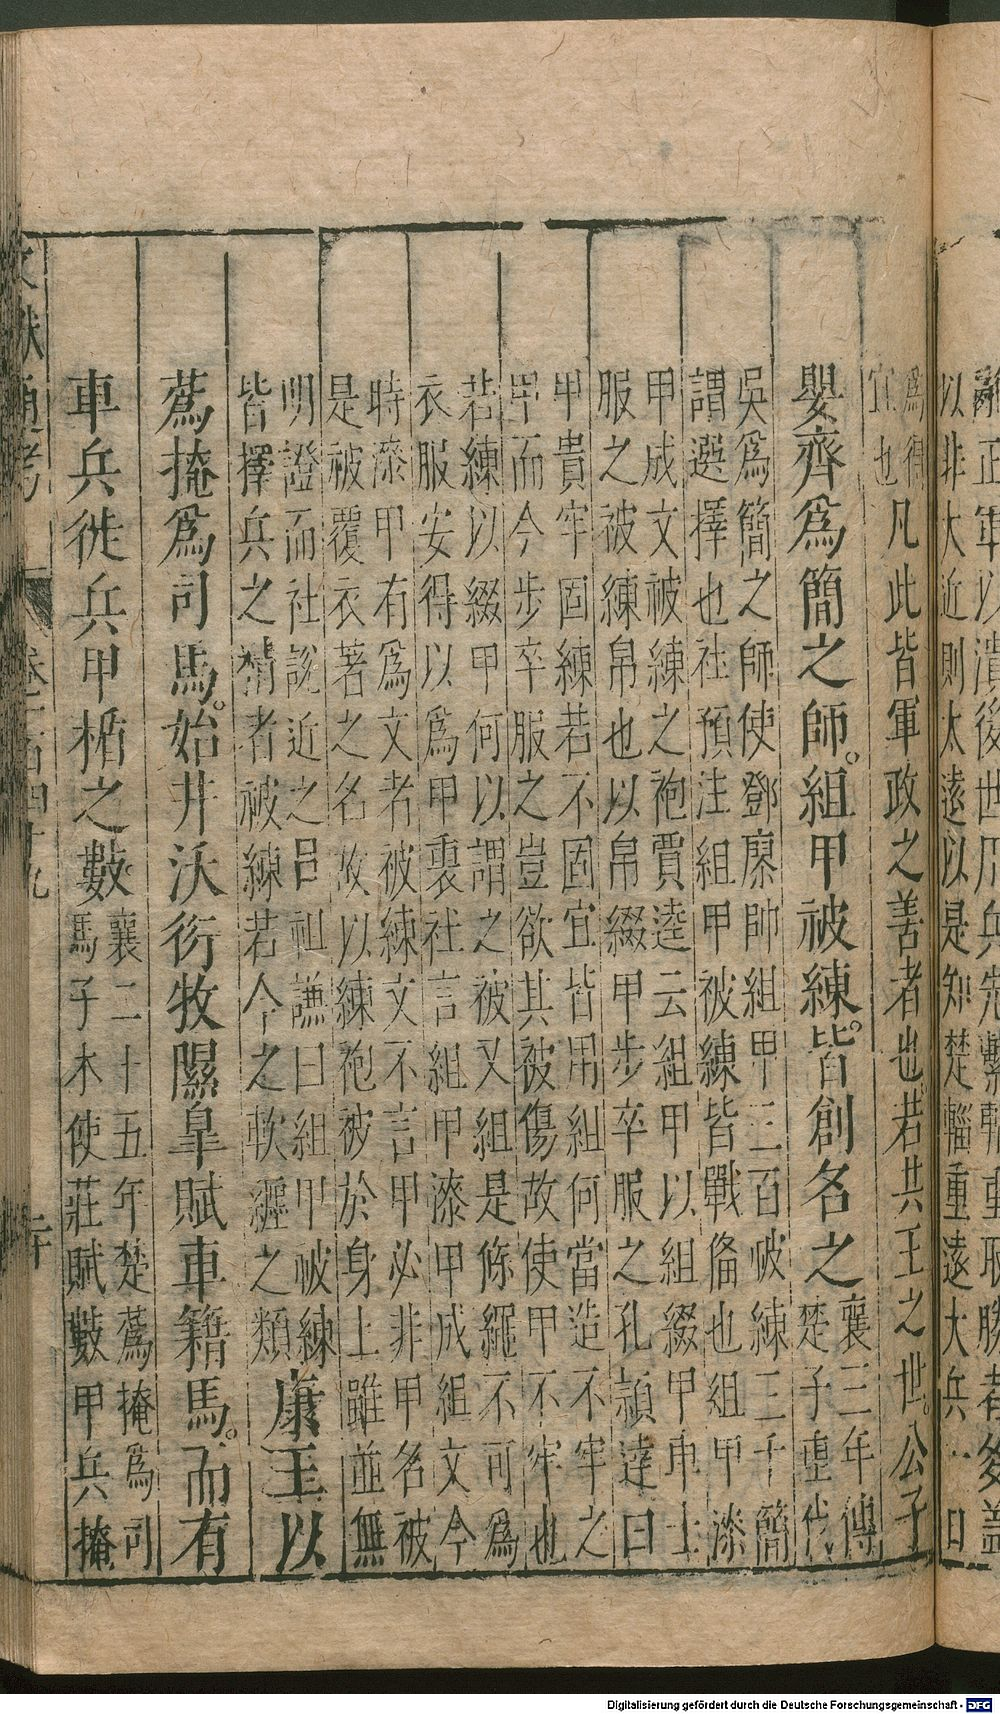 以非大近則太遠以是知楚輜重遠大兵一日
爲得
宜也
凡此皆軍政之善者也若共王之世公子
嬰齊爲簡之師組甲被練皆創名之
襄三年傳
楚子重伐
吳爲簡之師使鄧廖帥組甲三百被練三千簡
謂選擇也社預注組甲被練皆戰備也組甲漆
甲成文被練之袍賈逵云組甲以組綴甲車士
服之被練帛也以帛綴甲步卒服之孔頴達曰
甲貴牢固練若不固宜皆用組何當造不牢之
甲而今步卒服之豈欲其被傷故使甲不牢也
若練以綴甲何以謂之被又組是絛繩不可爲
衣服安得以爲甲裏社言組甲漆甲成組文今
時漆甲有爲文者被練文不言甲必非甲名被
是被覆衣著之名故以練袍被於身上雖並無
明證而社說近之呂祖謙曰組甲被練
皆擇兵之精者被練若今之軟纏之類
康王以
蒍掩爲司馬始井沃衍牧隰皐賦車籍馬而有
車兵徙兵甲楯之數
襄二十五年楚蒍掩爲司
馬子木使莊賦數甲兵掩
文獻通考 卷一百四十九 二十
Digitalisierung gefördert durch die Deutsche Forschungsgemeinschaft - DFG